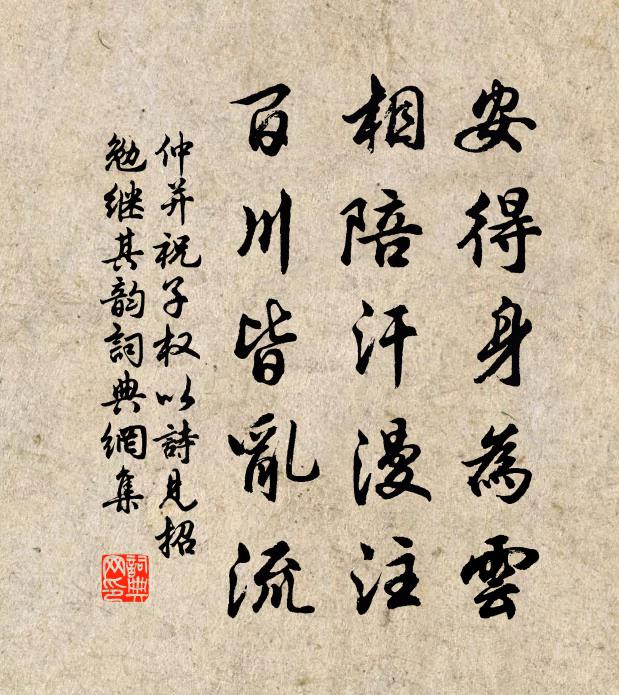 安得身為雲
相陪汗漫注
百川皆亂流
仲并祝子权以詩見招
勉继其韵詞典網集
詞典網印